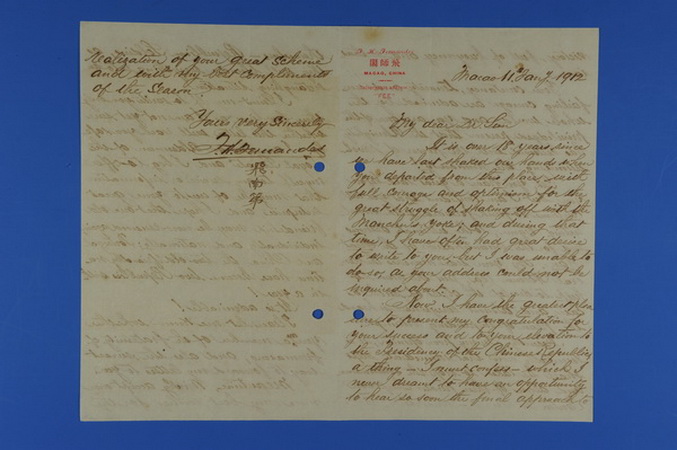 realization of your great scheme
and with my best compliments
of the Season.
Yours very Sincerely
F. H. Fernandes
飛南第
F. H. Fernandes
第南飛
MACAO, CHINA
Macao 11 Jany. 1912
My dear Dr. Sun
It is over 18 years since
we have last shaked our hands when
you departed from this place, with
full courage and optimism for the
great struggle of shaking off with the
Manchu's Yoke; and during that
time, I have often had great desire
to write to you, but I was unable to
do so, as your address could not be
inquired about.
Now, I have the greatest plea
sure to present my congratulation for
your success and to your elevation to
the Presidency of the Chinese Republic,
a thing — I must confess — which I
never dreamt to have an opportunity
to hear so soon the final approach to